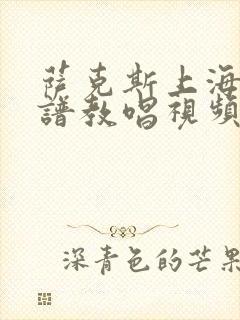 薩克斯上海
譜教唱視頻
深青色的芒果